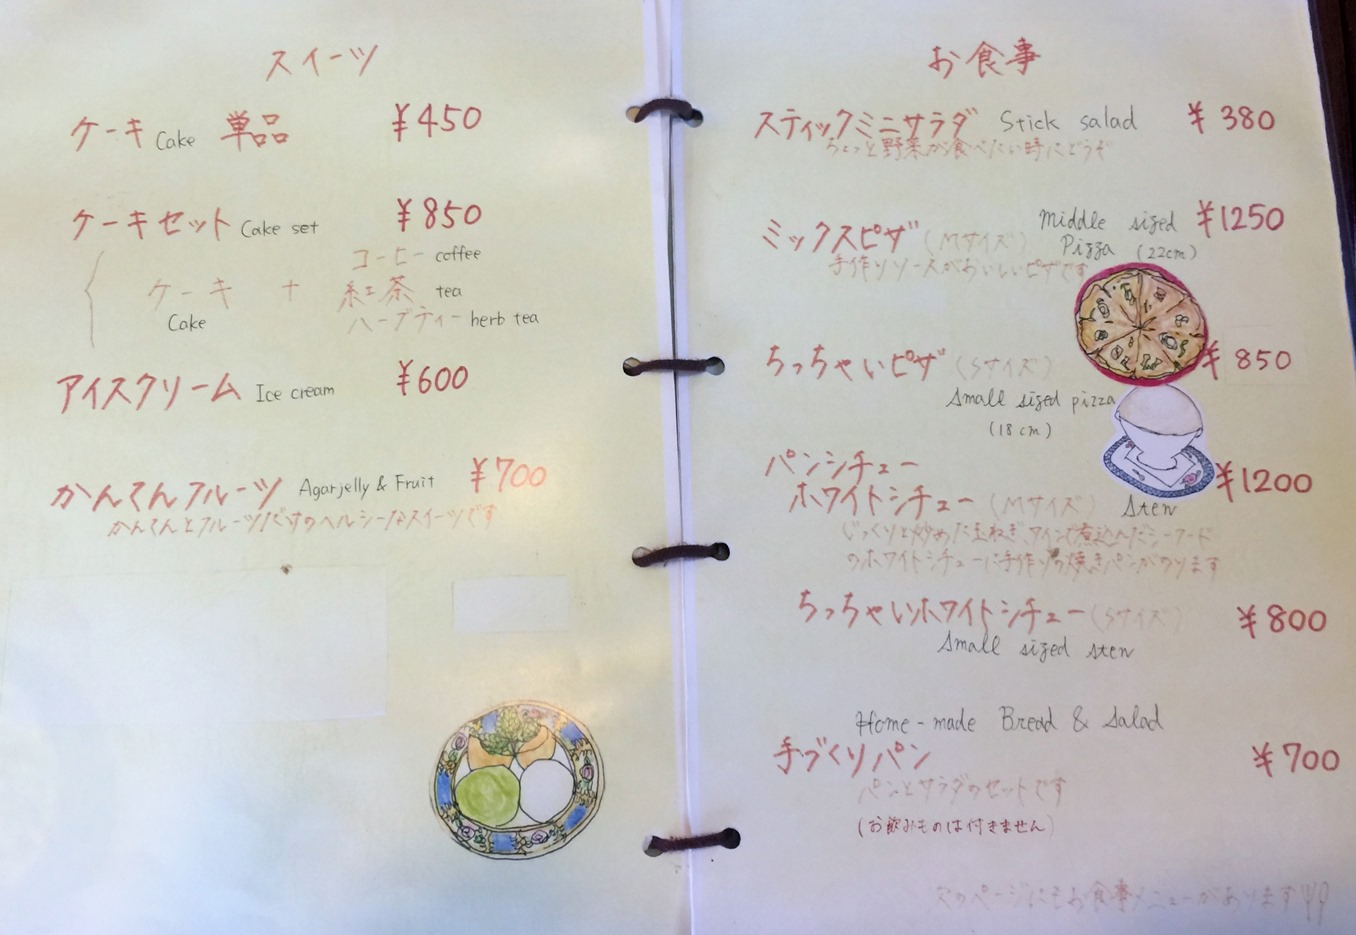 スイーツ
ケーキ Cake 単品 ¥450
ケーキセット Cake set ¥850
コーヒー coffee
ケーキ + 紅茶 tea
Cake
ハーブティー herb tea
アイスクリーム Ice cream ¥600
かんてんフルーツ Agarjelly & Fruit ¥700
かんてんとフルーツだけのヘルシーなスイーツです
お食事
スティックミニサラダ Stick salad ¥380
ちょっと野菜が食べたい時にどうぞ
ミックスピザ (Mサイズ) Middle sized ¥1250
Pizza (22cm)
手作りソースがおいしいピザです
ちっちゃいピザ (Sサイズ) ¥850
Small sized pizza
(18cm)
パンシチュー
ホワイトシチュー (Mサイズ) Sten ¥1200
じっくりと炒めた玉ねぎ、ワインで煮込んだシーフード
のホワイトシチューに手作りの焼きパンがのります
ちっちゃいホワイトシチュー (Sサイズ) ¥800
Small sized sten
Home-made Bread & Salad
手づくりパン ¥700
パンとサラダのセットです
(お飲みものは付きません)
次のページにもお食事メニューがあります